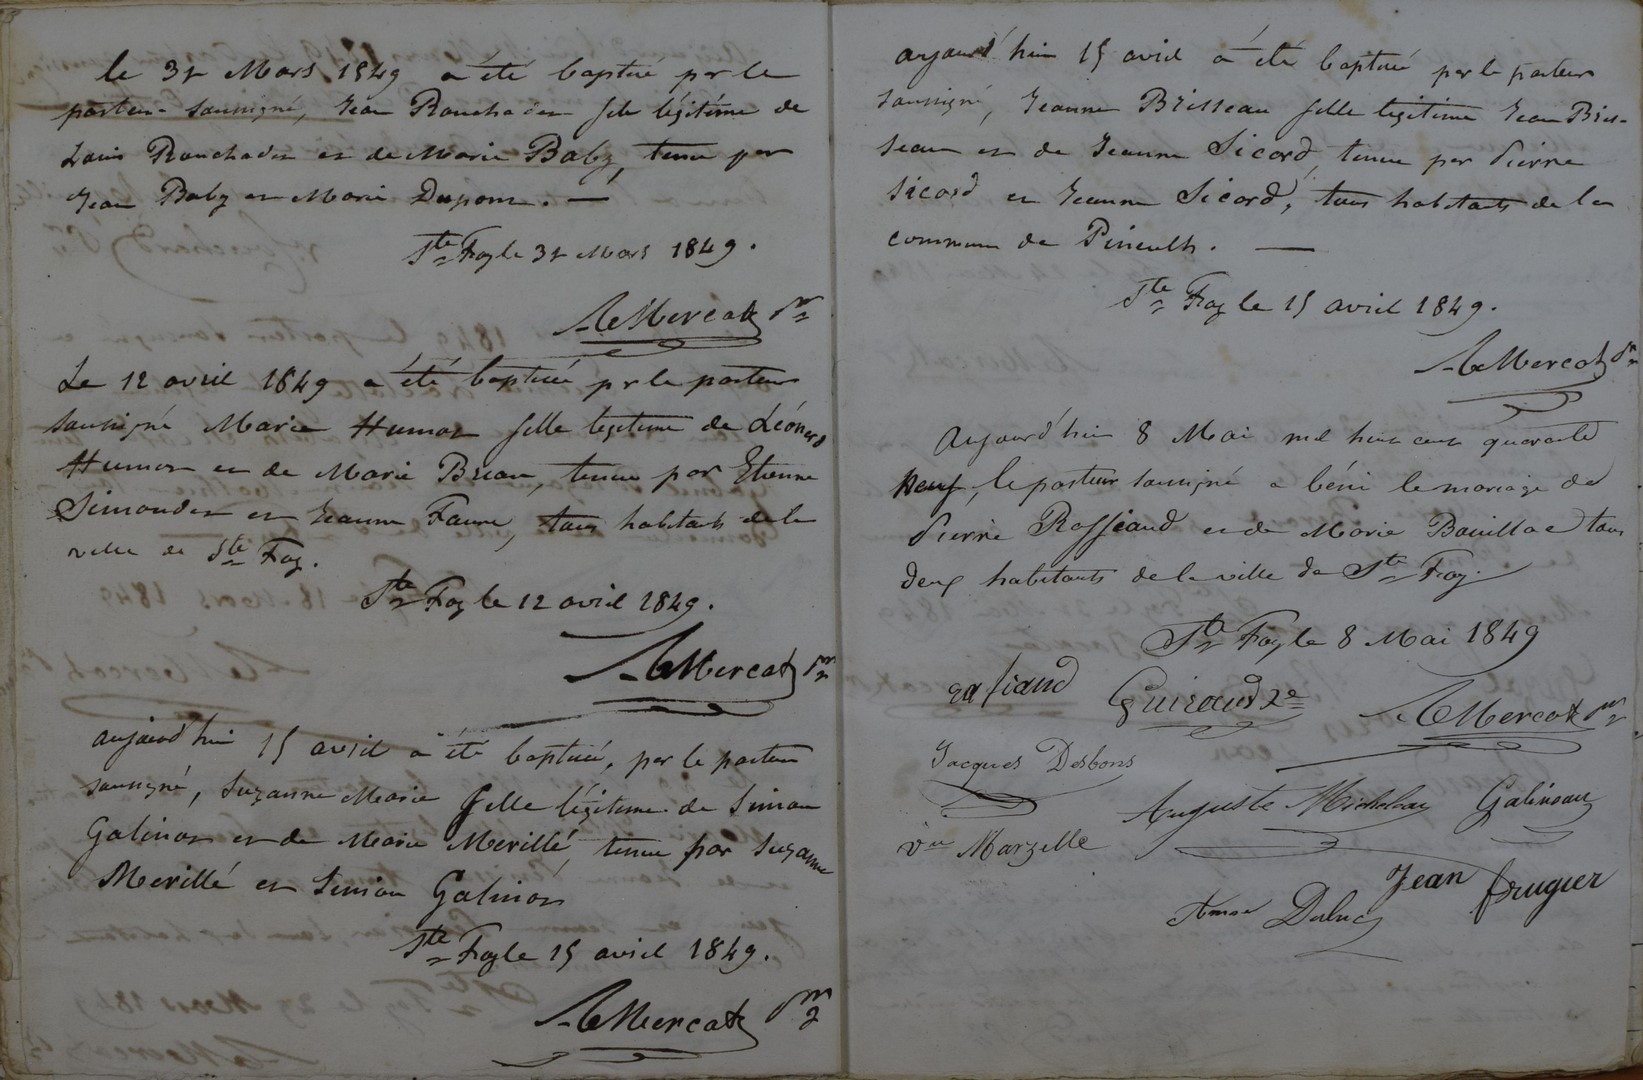 le 31 Mars 1849 a été baptisé pr le
pasteur soussigné, Jean Rouchader fils légitime de
Louis Rouchader et de Marie Baby, tenu par
Jean Baby et Marie Dupont. —
Ste Foy le 31 Mars 1849.
A. Mercat pr
Le 12 avril 1849 a été baptisée pr le pasteur
soussigné Marie Humon fille legitime de Léonard
Humon et de Marie Brian, tenue par Etienne
Simondet et Jeanne Faure, tous habitants de la
ville de Ste Foy.
Ste Foy le 12 avril 1849.
A. Mercat pr
aujourd'hui 15 avril a été baptisée, par le pasteur
soussigné, Suzanne Marie fille légitime de Simon
Galinou et de Marie Merillé, tenue par Suzanne
Merillé et Simon Galinou
Ste Foy le 15 avril 1849.
A. Mercat pr
aujourd'hui 15 avril a été baptisée par le pasteur
soussigné, Jeanne Brisseau fille legitime Jean Bris-
seau et de Jeanne Sicard, tenue par Pierre
Sicard et Jeanne Sicard, tous habitants de la
commune de Pineuilh. —
Ste Foy le 15 avril 1849.
A. Mercat pr
Aujourd'hui 8 Mai mil huit cent quarante
neuf, le pasteur soussigné a béni le mariage de
Pierre Raffiaud et de Marie Bouillac tous
deux habitants de la ville de Ste Foy.
Ste Foy le 8 Mai 1849
rafiaud Guiraud 2e A. Mercat pr
Jacques Desbons
Auguste Galineau
ve Marzelle
Jean frugier
Duluc